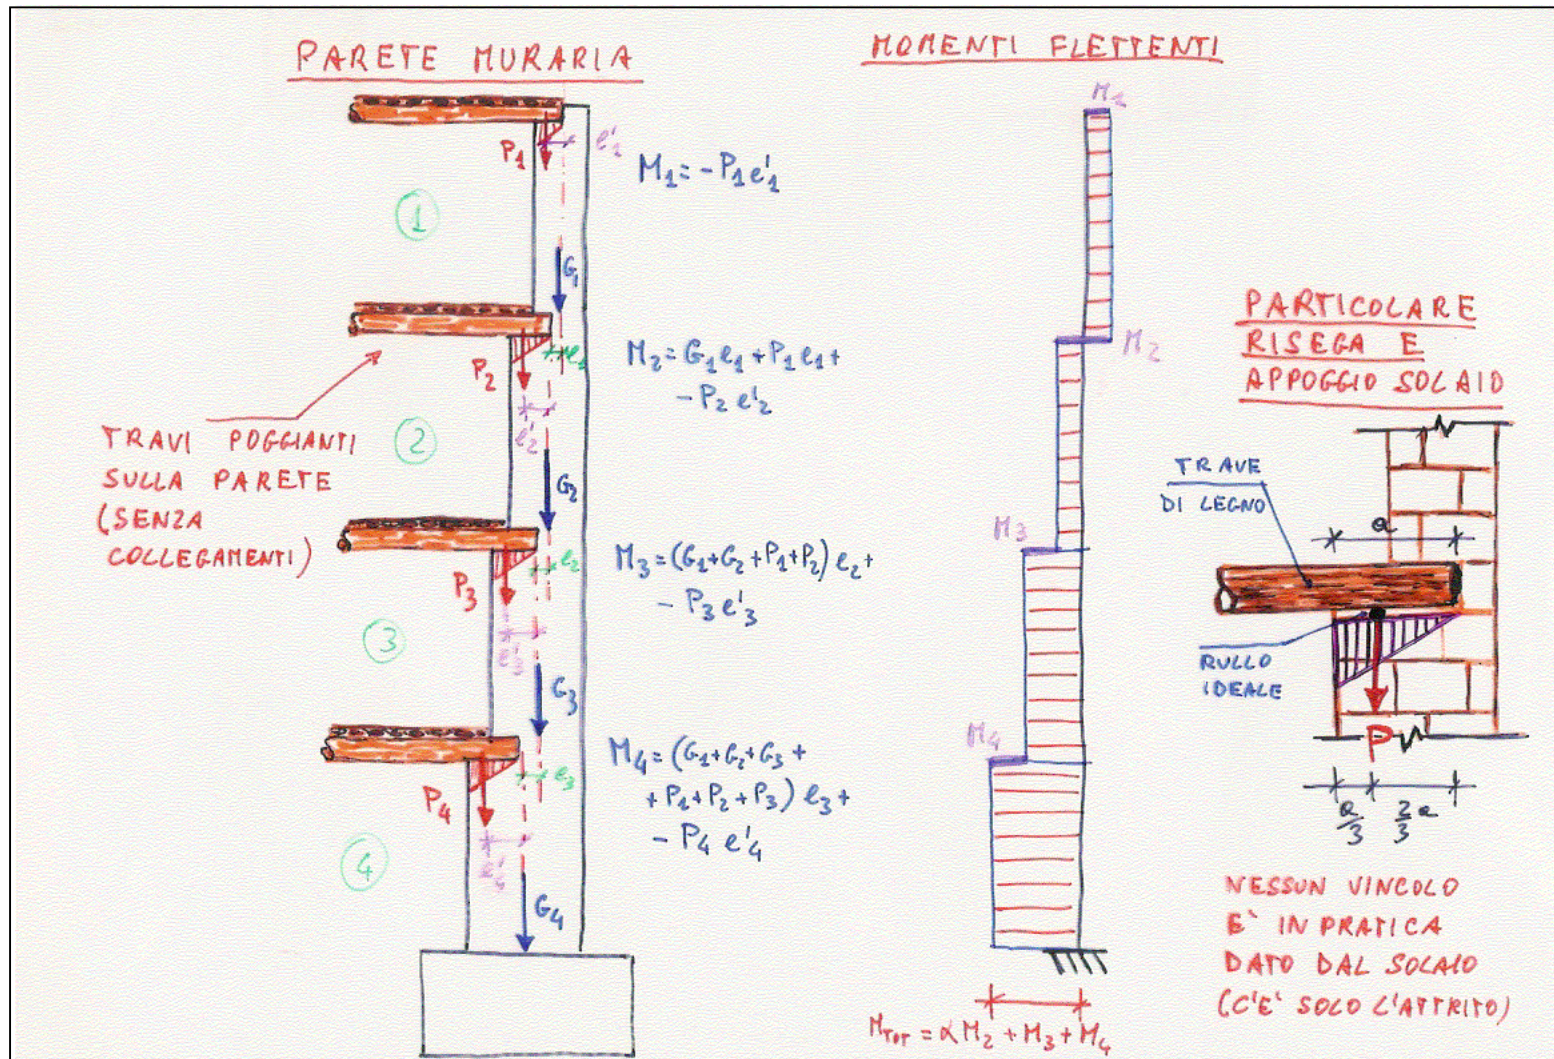 PARETE MURARIA
P₁
e'₁
M₁ = -P₁e'₁
1
G₁
P₂
e₁
M₂ = G₁e₁ + P₁e₁ +
- P₂e'₂
e'₂
TRAVI POGGIANTI
SULLA PARETE
(SENZA
COLLEGAMENTI)
2
G₂
P₃
e₂
M₃ = (G₁+G₂+P₁+P₂) e₂ +
- P₃e'₃
e'₃
3
G₃
P₄
e₃
M₄ = (G₁+G₂+G₃ +
+ P₁+P₂+P₃) e₃ +
- P₄e'₄
e'₄
4
G₄
MOMENTI FLETTENTI
M₁
M₂
M₃
M₄
M_TOT = αM₂ + M₃ + M₄
PARTICOLARE
RISEGA E
APPOGGIO SOLAIO
TRAVE
DI LEGNO
a
RULLO
IDEALE
P
a/3 2/3 a
NESSUN VINCOLO
E' IN PRATICA
DATO DAL SOLAIO
(C'E' SOLO L'ATTRITO)